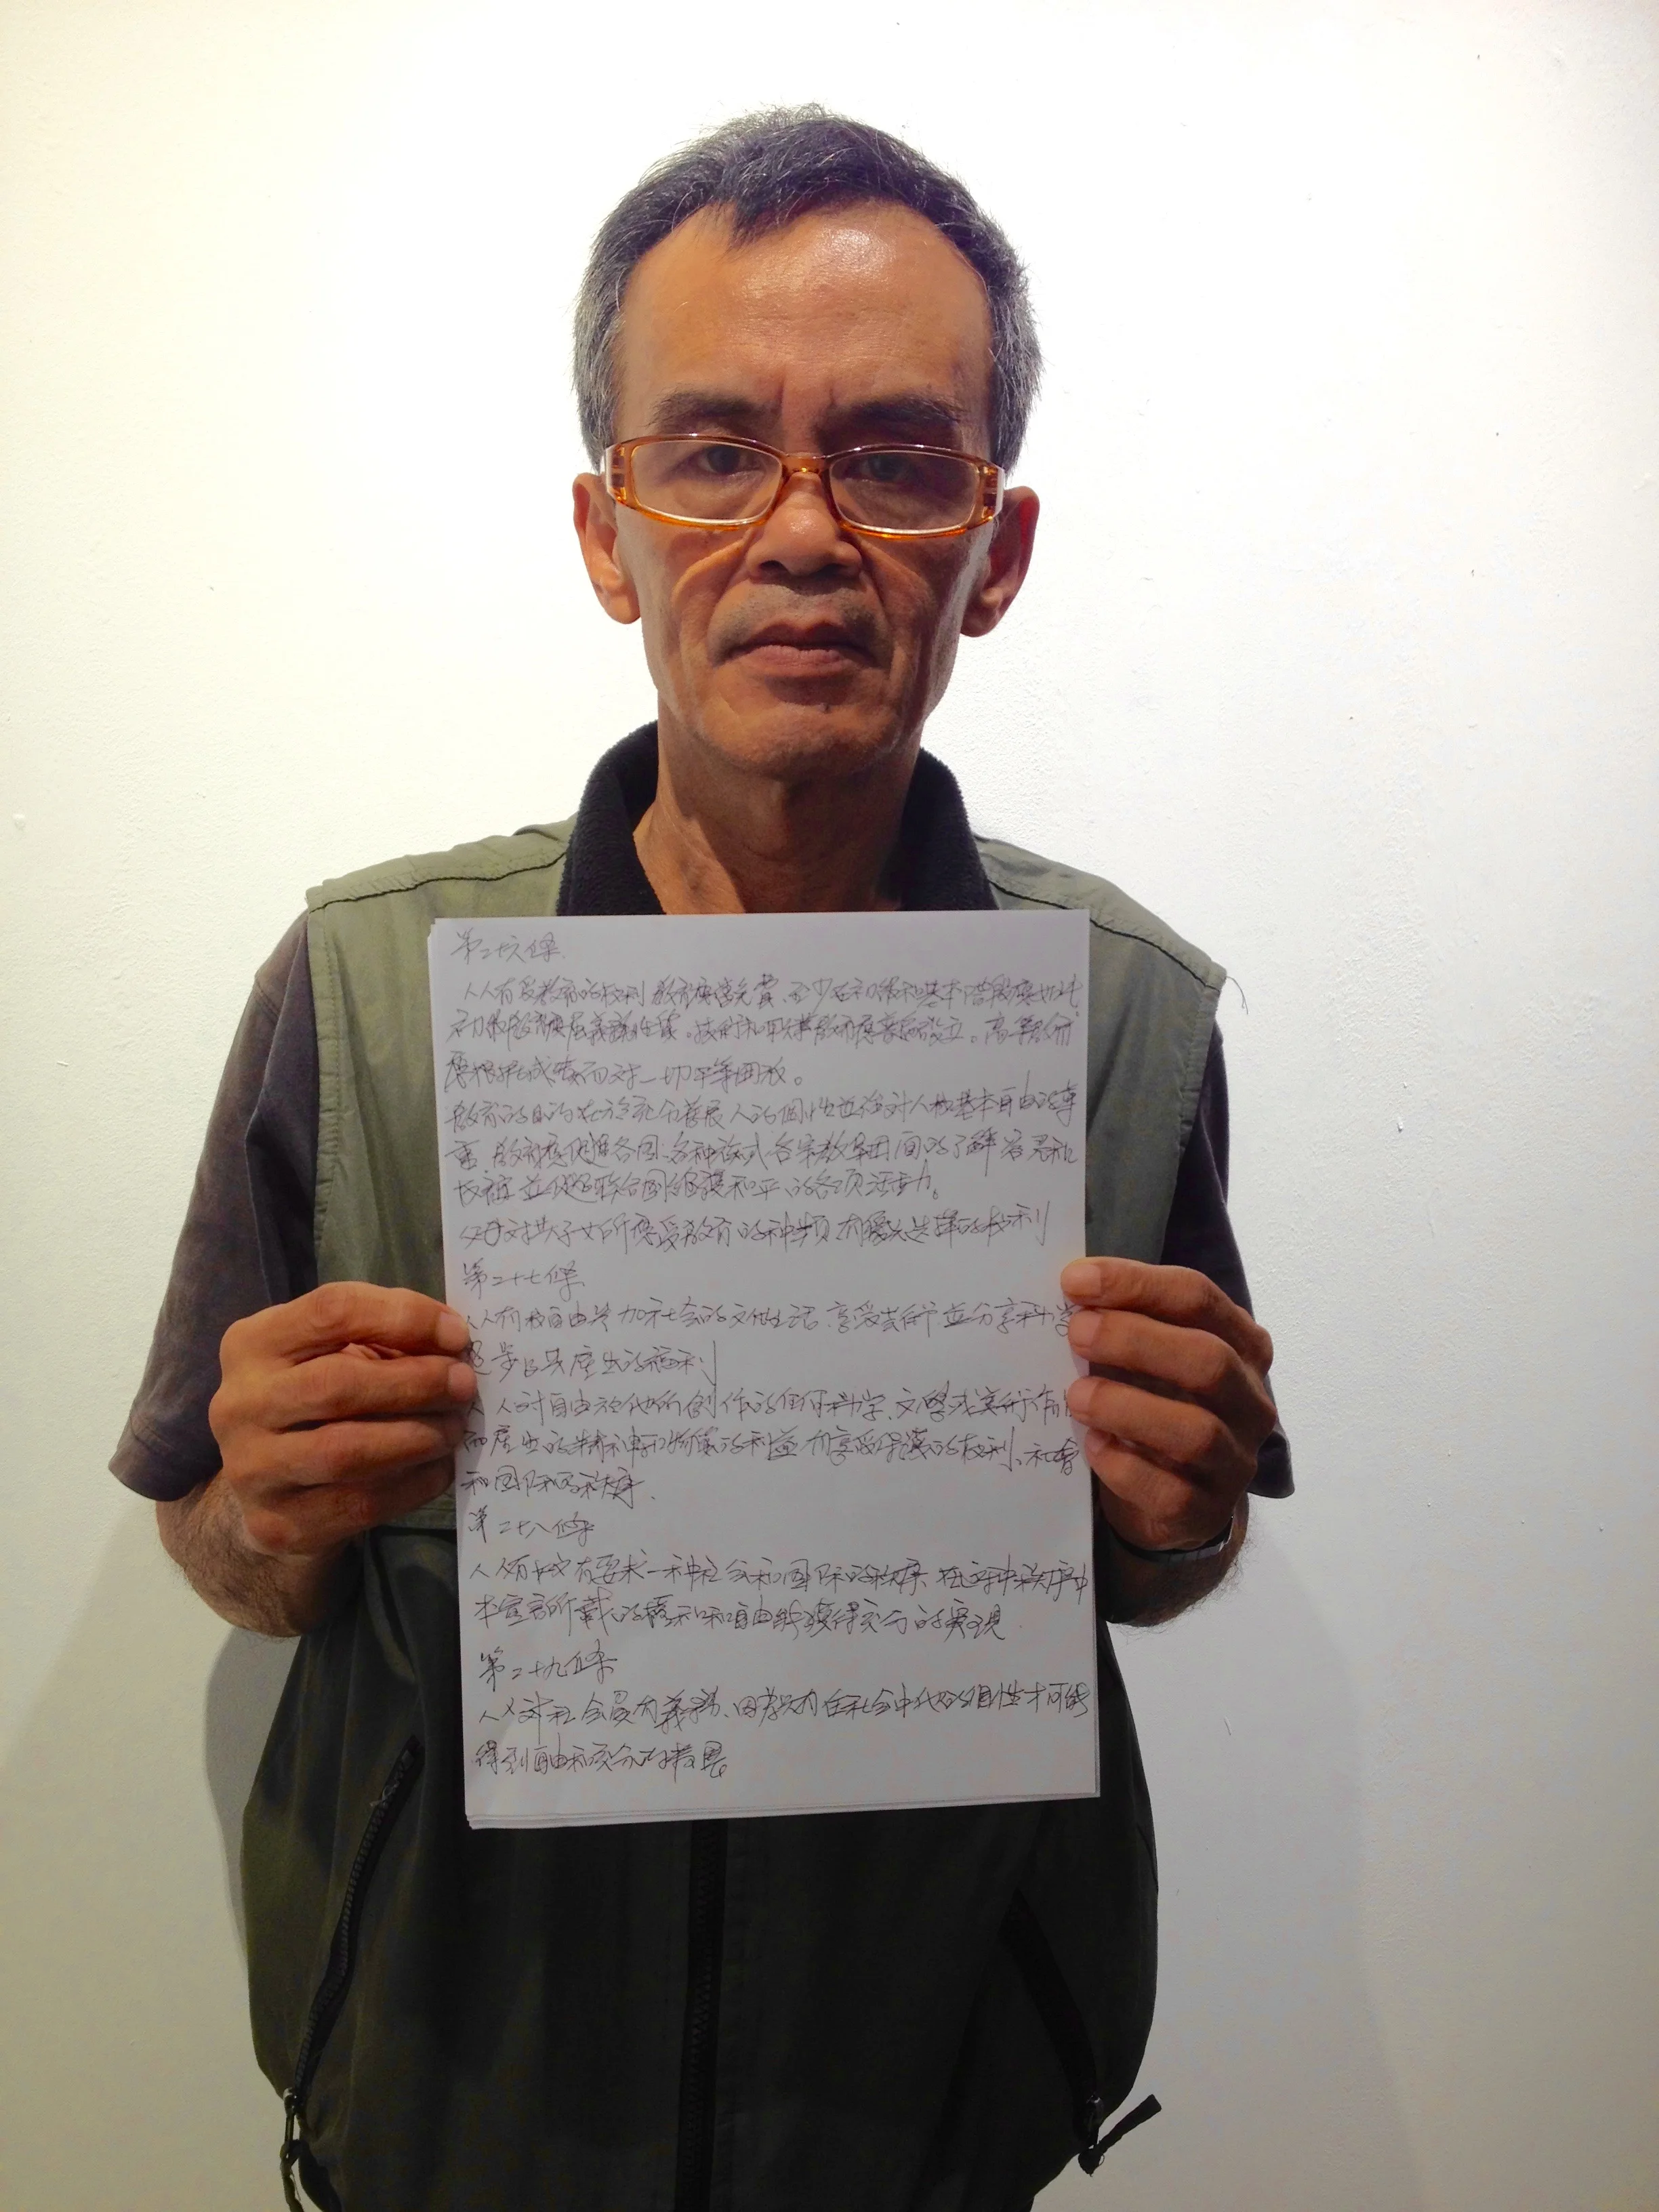 第二十六條
人人有受教育的权利 教育應當免費、至少在初級和基本階段應如此
初級教育應屬義務性質。技術和職業教育應普遍設立。高等教育
應根據成績而对一切平等開放。
教育的目的在於充分發展人的個性並加強对人權基本自由的尊
重 教育應促進各国、各种族或各宗教集团间的了解容忍和
友誼 並促進联合國維護和平的各項活動。
父母对其子女所應受教育的种類有優先选擇的权利
第二十七條
人人有权自由参加社会的文化生活、享受芸術並分享科学
進步及其產生的福利
人人对自由於他所創作的任何科学、文學或美術作品
而產生的精神和物質的利益 有享受保護的权利、社會
和国际的秩序
第二十八條
人人有权有要求一种社会和国际的秩序、在这种秩序中
本宣言所載的權利和自由能獲得充分的實現
第二十九條
人人对社会負有義務、因為只有在社会中他的個性才可能
得到自由和充分的發展